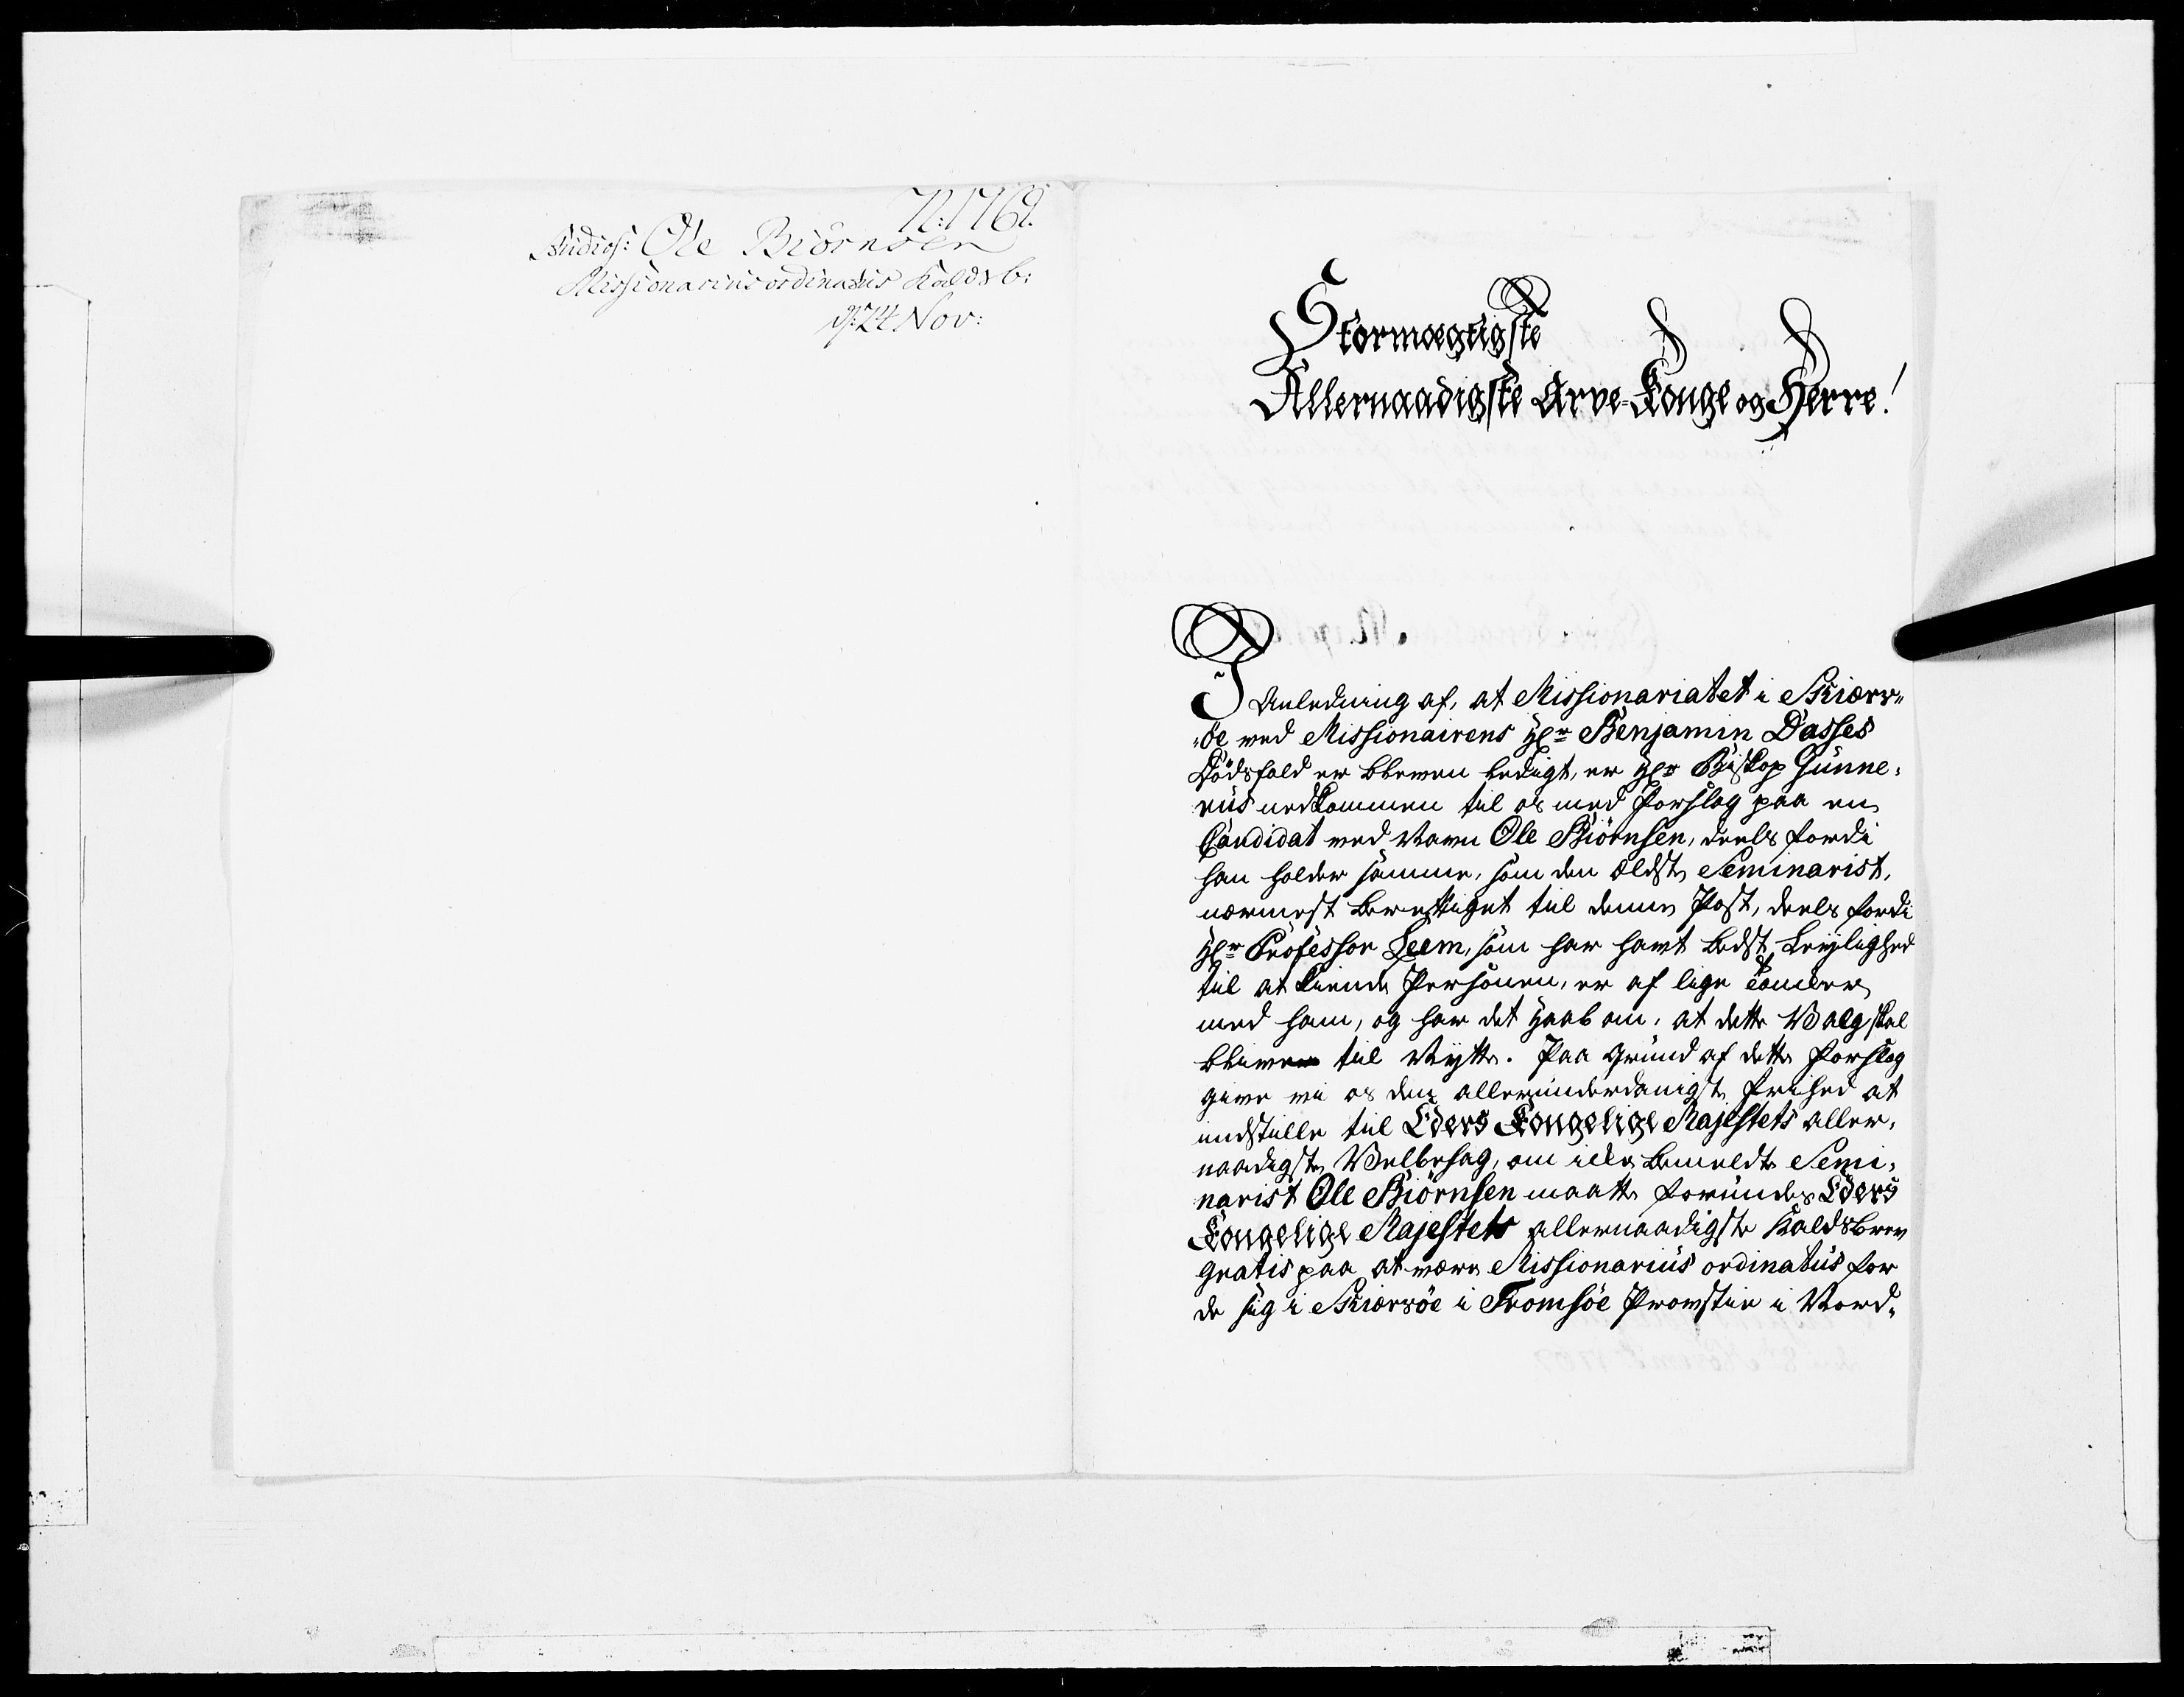 N: 1769.
Studios: Ole Biörnsen
Missionarius ordinatus Kalds b:
d: 24 Nov:
Stormægtigste
Allernaadigste Arve-Konge og Herre!
I Anledning af, at Missionariatet i Skiærv-
öe ved Missionairens Hr Benjamin Dasses
Dödsfald er bleven ledigt, er Hr Biskop Gunne-
rus nedkommen til os med Forslag paa en
Candidat ved Navn Ole Biörnsen, deels fordi
han holder samme, som den ældste Seminarist,
nærmest berettiget til denne Post, deels fordi
Hr Professor Leem, som har havt bedst Leylighed
til at kiende Personen, er af lige Tanker
med ham, og har det Haab om, at dette Valg skal
blive til Nytte. Paa Grund af dette Forslag
give vi os den allerunderdanigste Frihed at
indstille til Eders Kongelige Majestets aller-
naadigste Velbehag, om ikke bemeldte Semi-
narist Ole Biörnsen maatte forundes Eders
Kongelige Majestets allernaadigste Kaldsbrev
gratis paa at være Missionarius ordinatus for
de sig i Skiervöe i Tromsöe Provstie i Nord-